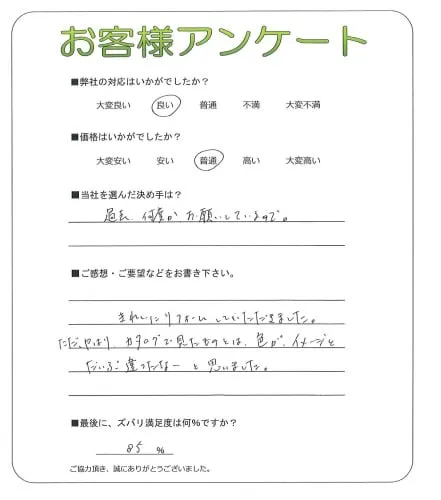 お客様アンケート
■弊社の対応はいかがでしたか？
大変良い 良い 普通 不満 大変不満
■価格はいかがでしたか？
大変安い 安い 普通 高い 大変高い
■当社を選んだ決め手は？
過去、何度か お願いしているので。
■ご感想・ご要望などをお書き下さい。
きれいにリフォームしていただきました。
ただ、やはり、カタログで見たものとは、色が、イメージと
だいぶ違ったなーと思いました。
■最後に、ズバリ満足度は何％ですか？
85 %
ご協力頂き、誠にありがとうございました。